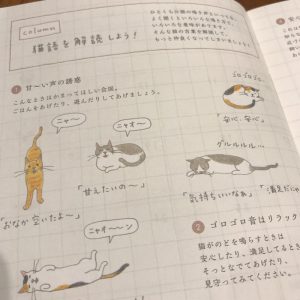 column
猫語を解読しよう！
ひとくちに猫の鳴き声といっても、
よく聞くといろいろな鳴き方で、
いろいろな意味があります。
そんな猫の言葉を解読して、
もっと仲良くなってしまいましょう！
1 甘〜い声の誘惑
こんなときはかまってほしい合図。
ごはんをあげたり、遊んだりしてあげましょう。
ニャ〜
「おなか空いたよ〜」
ニャオ〜
「甘えたいの〜」
ニャオ〜〜ン
ゴロゴロ
「安心、安心」
グルルルル…
「気持ちいいなぁ」
「満足だにゃ
2 ゴロゴロ音はリラッ
猫がのどを鳴らすときは
安心したり、満足してるとき
そっとなでてあげたり、
見守ってみてください。
3